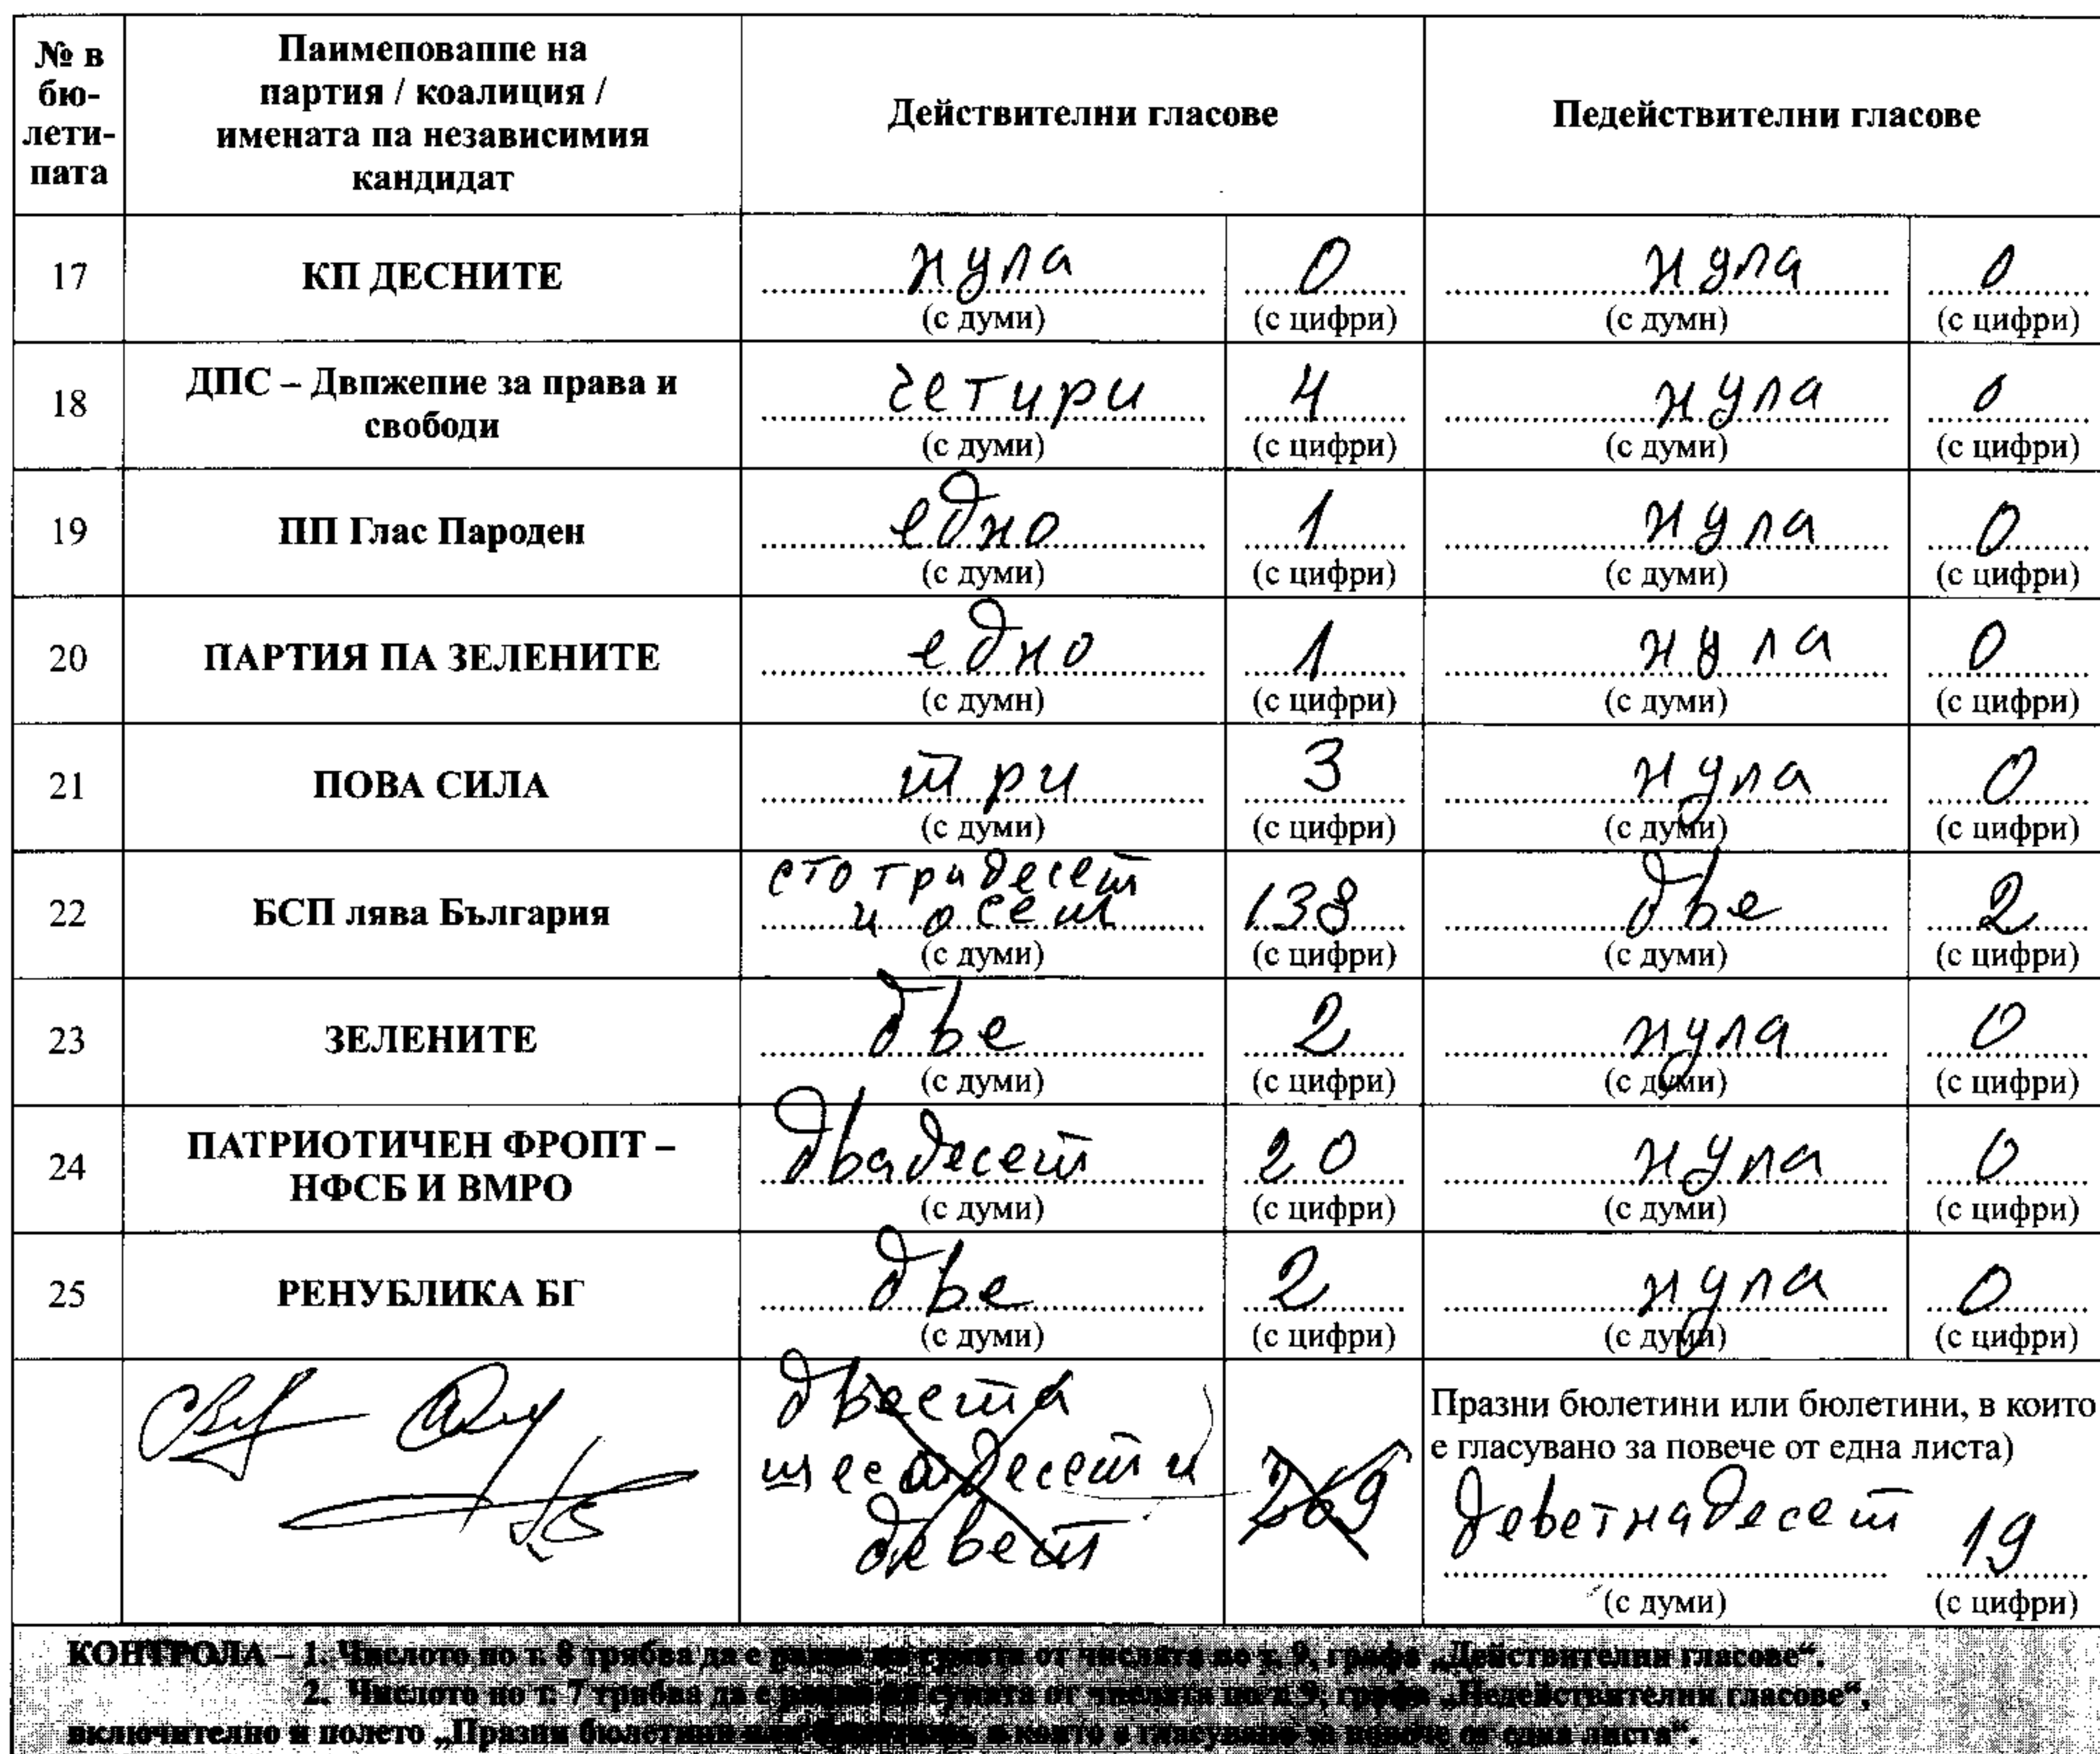 № в
бю-
лети-
пата
Паимеповаппе на
партия / коалиция /
имената па независимия
кандидат
Действителни гласове
Педействителни гласове
17 КП ДЕСНИТЕ нула 0 нула 0
(с думи) (с цифри) (с думн) (с цифри)
18 ДПС – Двпжепие за права и
свободи четири 4 нула 0
(с думи) (с цифри) (с думи) (с цифри)
19 ПП Глас Пароден едно 1 нула 0
(с думи) (с цифри) (с думи) (с цифри)
20 ПАРТИЯ ПА ЗЕЛЕНИТЕ едно 1 нула 0
(с думн) (с цифри) (с думи) (с цифри)
21 ПОВА СИЛА три 3 нула 0
(с думи) (с цифри) (с думи) (с цифри)
22 БСП лява България сто тридесет
и осем 138 две 2
(с думи) (с цифри) (с думи) (с цифри)
23 ЗЕЛЕНИТЕ две 2 нула 0
(с думи) (с цифри) (с думи) (с цифри)
24 ПАТРИОТИЧЕН ФРОПТ –
НФСБ И ВМРО двадесет 20 нула 0
(с думи) (с цифри) (с думи) (с цифри)
25 РЕНУБЛИКА БГ две 2 нула 0
(с думи) (с цифри) (с думи) (с цифри)
двеста
шестдесет и
девет
269
Празни бюлетини или бюлетини, в които
е гласувано за повече от една листа)
деветнадесет 19
(с думи) (с цифри)
КОНТРОЛА – 1. Числото по т. 8 трябва да е равно на сумата от числата по т. 9, графа „Действителни гласове“.
2. Числото по т. 7 трябва да е равно на сумата от числата по т. 9, графа „Недействителни гласове“,
включително и полето „Празни бюлетини или бюлетини, в които е гласувано за повече от една листа“.